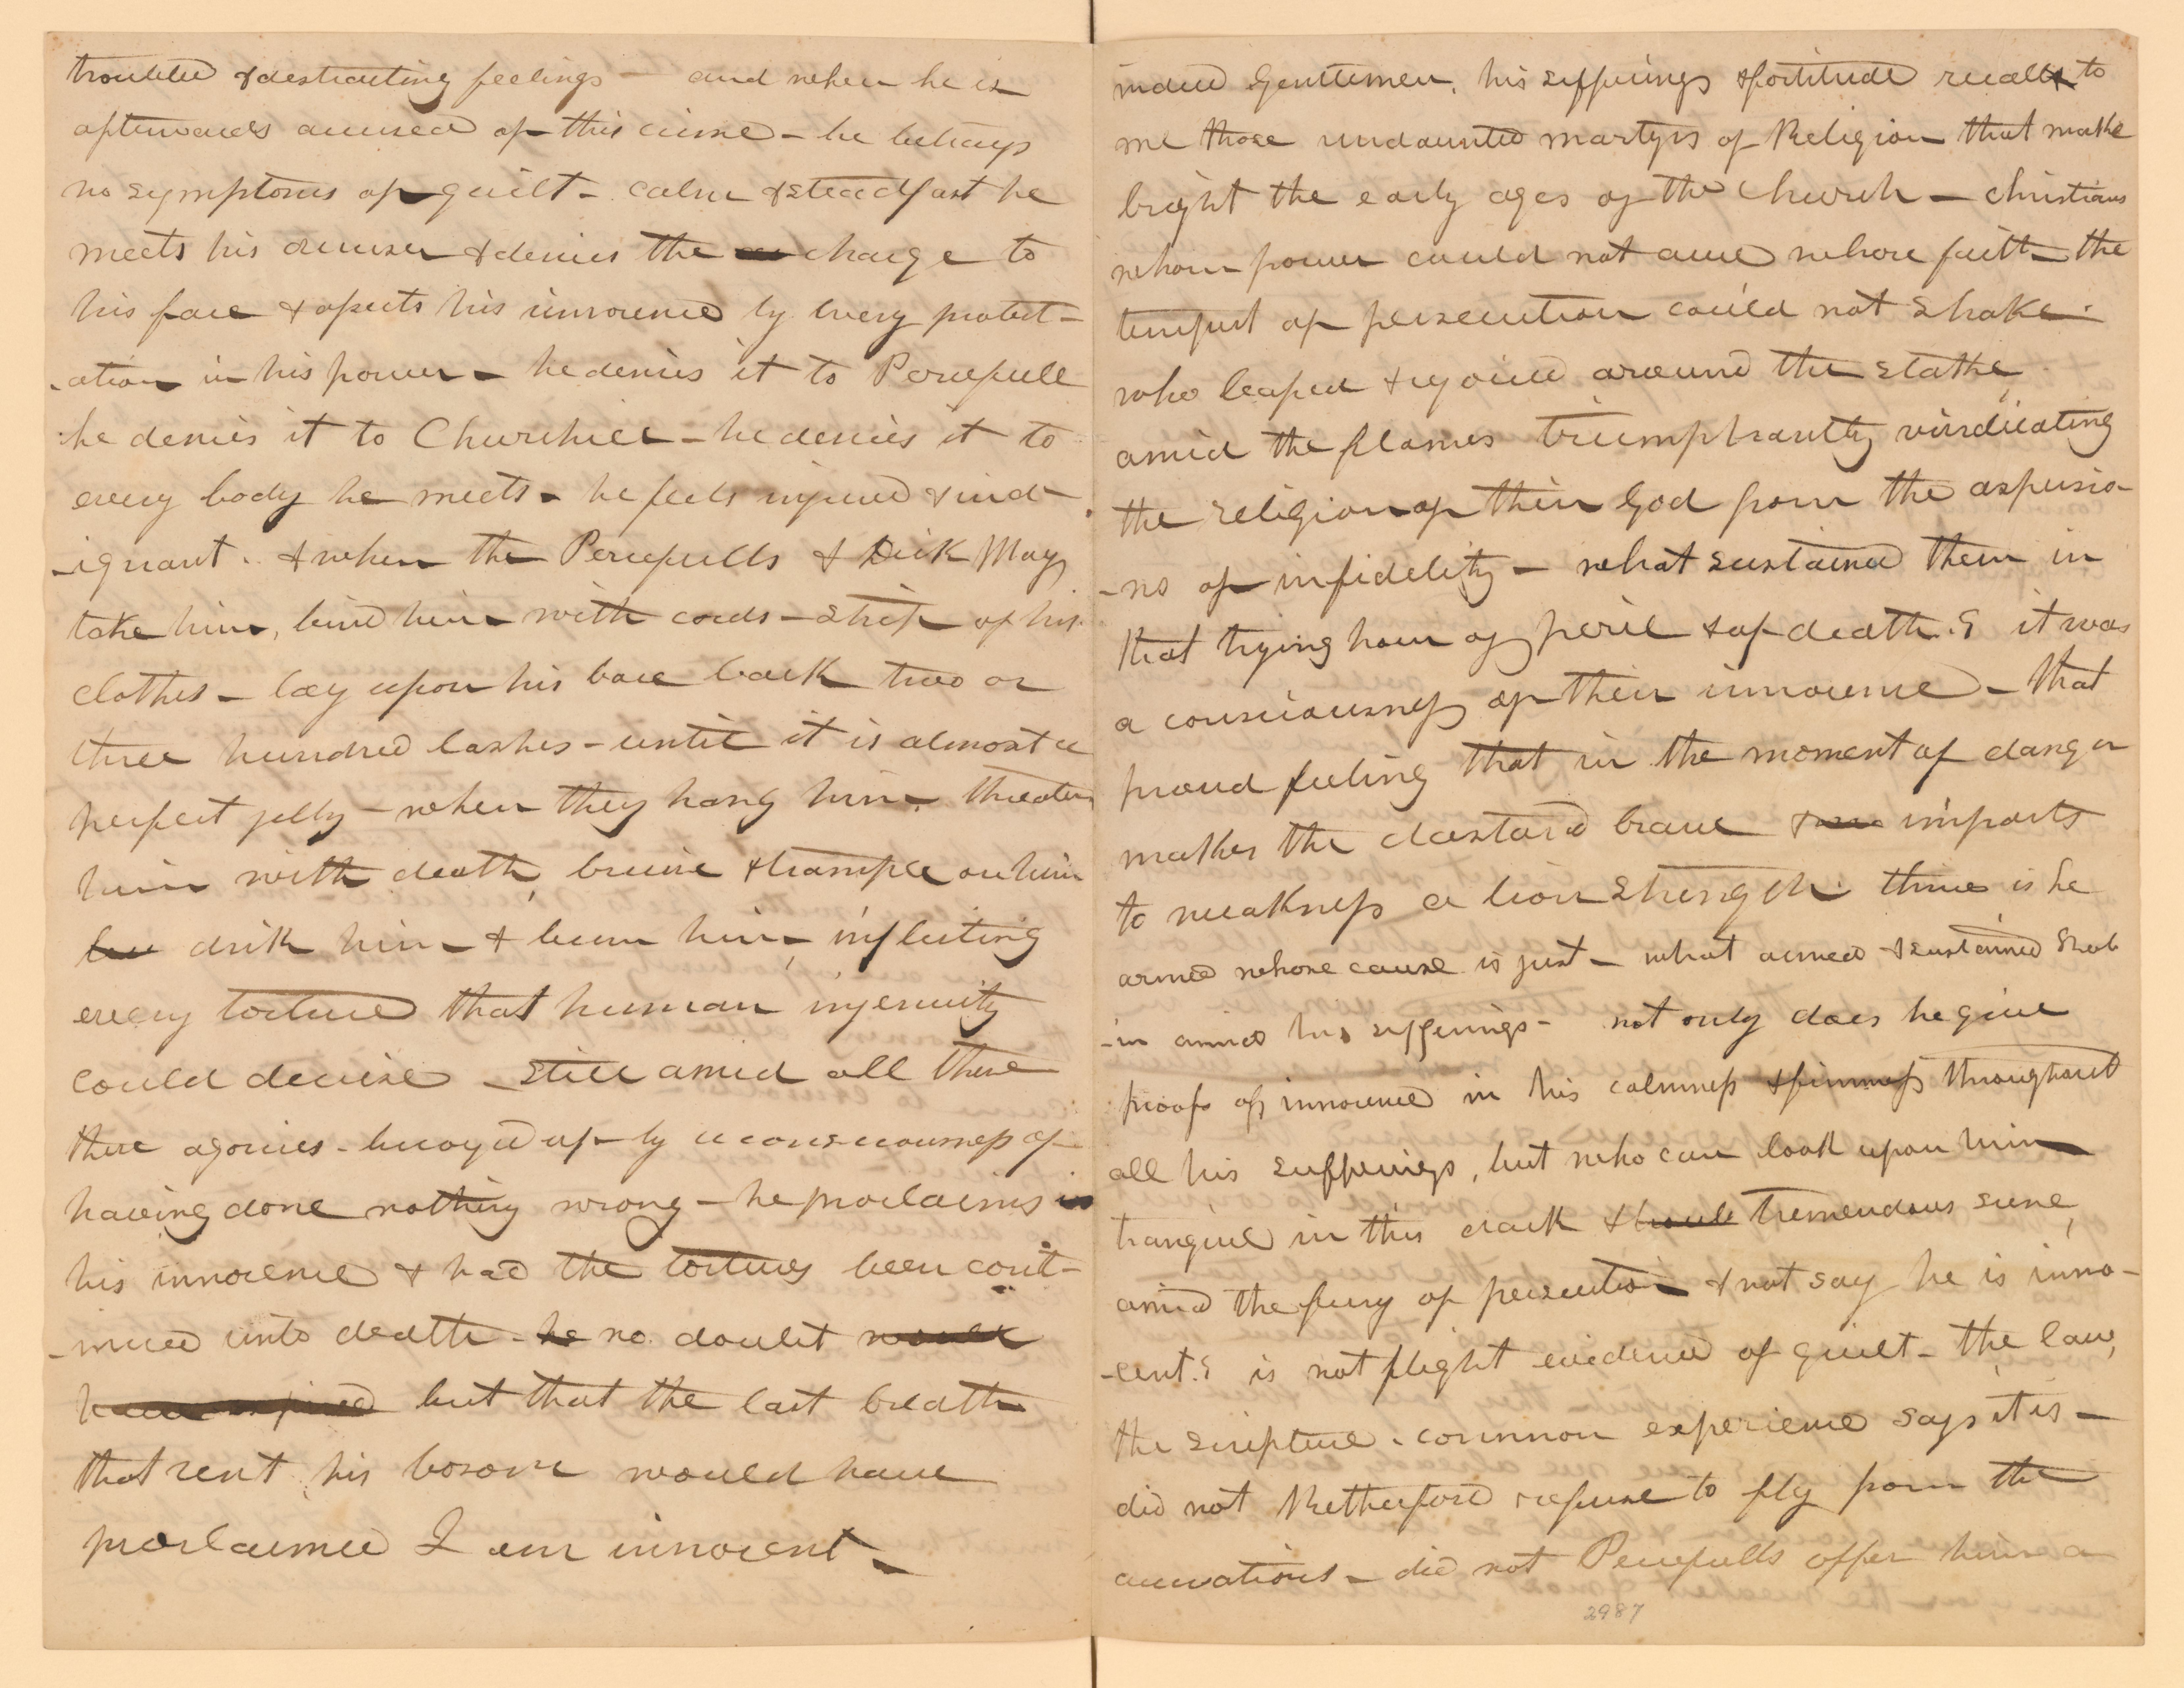 troubled & destracting feelings — and when he is
afterwards accused of this crime – he betrays
no symptoms of guilt – calm & steadfast he
meets his accuser & denies the charge to
his face & asserts his innocence by every protest-
-ation in his power – he denies it to Percefull
he denies it to Churchill – he denies it to
every body he meets – he feels injured & ind-
-ignant. & when the Percefulls & Dick May
take him, bind him with cords – strip of his
clothes – lay upon his bare back two or
three hundred lashes – until it is almost a
perfect jelly – when they hang him – threaten
him with death, bruise & trample on him
him & burn him, inflicting
every torture that human ingenuity
could devise – still amid all these
there agonies – buoyed up – by a consciousness of
having done nothing wrong – he proclaims
his innocence & had the tortures been cont-
-inued unto death – no doubt
but that the last breath
that rent his bosom would have
proclaimed I am innocent –
indeed Gentlemen, his sufferings & fortitude recall to
me those undaunted martyrs of Religion that make
bright the early ages of the Church – christians
whom power could not awe whose faith the
tempest of persecution could not shake.
who leaped & rejoiced around the stake,
amid the flames triumphantly vindicating
the religion of their God from the aspersio-
-ns of infidelity – what sustained them in
that trying hour of peril & of death? it was
a consciousness of their innocence – that
proud feeling that in the moment of danger
makes the dastard brave & imparts
to weakness a lion strength. thrice is he
armed whose cause is just – what armed & sustained
-in amid his sufferings – not only does he give
proofs of innocence in his calmness & firmness throughout
all his sufferings, but who can look upon him
tranquil in this dark & tremendous scene,
amid the fury of persecution & not say he is inno-
-cent? is not flight evidence of guilt – the law,
the scripture – common experience says it is –
did not Retherford refuse to fly from the
accusations – did not Percefulls offer him a
2987